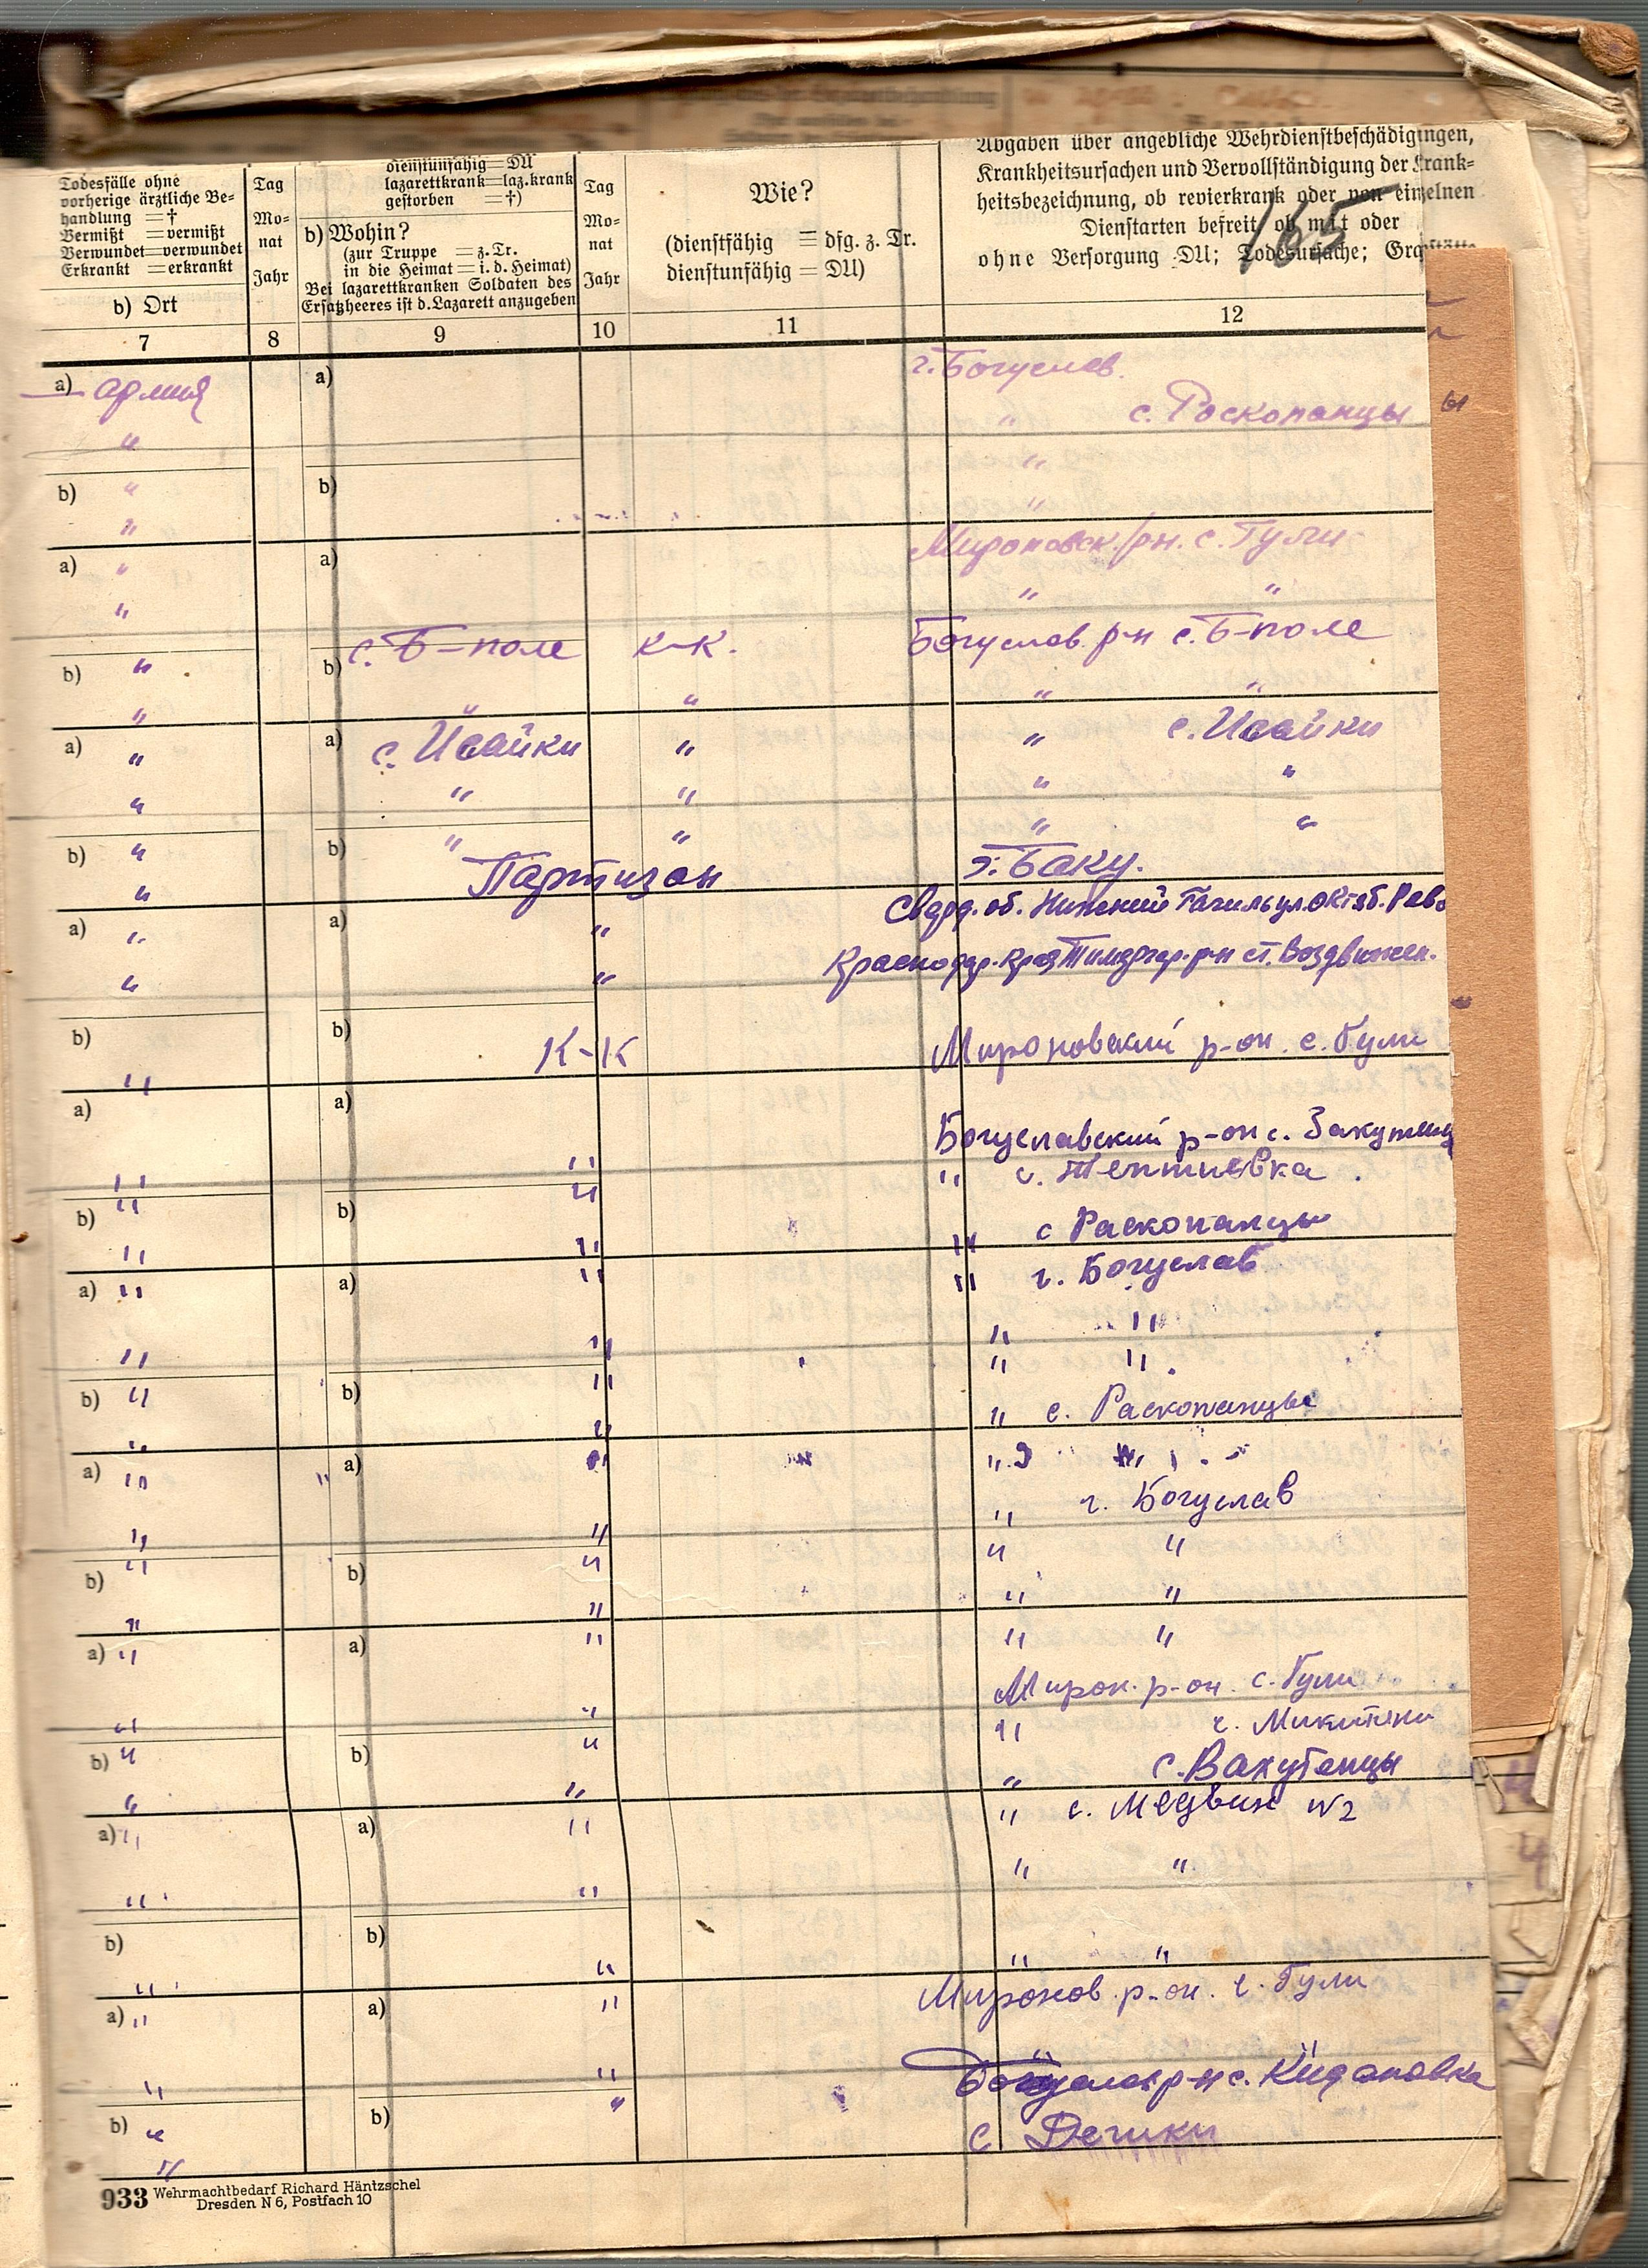 Todesfälle ohne
vorherige ärztliche Be-
handlung = †
Vermißt = vermißt
Verwundet = verwundet
Erkrankt = erkrankt
b) Ort
Tag
Mo-
nat
Jahr
dienstunfähig = DU
lazarettkrank = laz.krank
gestorben = †)
b) Wohin?
(zur Truppe = z. Tr.
in die Heimat = i. d. Heimat)
Bei lazarettkranken Soldaten des
Ersatzheeres ist d. Lazarett anzugeben
Tag
Mo-
nat
Jahr
Wie?
(dienstfähig = dfg. z. Tr.
dienstunfähig = DU)
Abgaben über angebliche Wehrdienstbeschädigungen,
Krankheitsursachen und Vervollständigung der Krank-
heitsbezeichnung, ob revierkrank oder von einzelnen
Dienstarten befreit, ob mit oder
ohne Versorgung DU; Todesursache; Grabstätte
165
7 8 9 10 11 12
a) армия a) г. Богуслав.
" " с. Роскопанцы
"
b) " b) "
"
a) " a) Мироновск. /рн. с. Гули
" " "
b) " b) с. Б-поле к-к. Богуслав. р-н с. Б-поле
" " " " "
a) " a) с. Исайки " " с. Исайки
" " " " "
b) " b) " " " "
" Партизан г. Баку.
a) " a) " Сверд. об. Нижний Тагил ул. Октяб. Рево
" " Краснодар. край Тимяргар. р-н ст. Воздвижен.
b) b) К-К Мироновский р-он. с. Гули
"
a) a) Богуславский р-он с.
" " " с. Тептиевка.
b) " b) "
" " " с Раскопанцы
a) " a) " " г. Богуслав
" " " "
" "
b) " b) "
" " " с. Раскопанцы
a) " a) " " "
" " " г. Богуслав
b) " b) " " "
" " " "
a) " a) " " "
Мирон. р-он. с. Гули
" " "
b) " b) " с. Вахутенцы
" " " с. Медвин N2
a) " a) "
" " " "
b) b)
" " " "
a) " a) " Миронов. р-он. с. Гули
" " р-н с. Кидановка
b) " b) " с Дешки
"
933 Wehrmachtbedarf Richard Häntzschel
Dresden N 6, Postfach 10